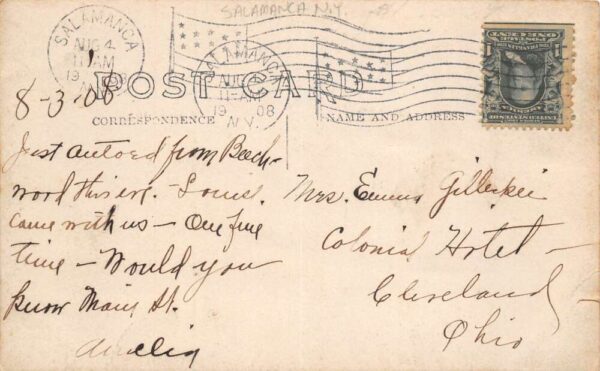 SALAMANCA N.Y.
SALAMANCA
AUG 4
11 AM
19
N.Y.
SALAMANCA
AUG 4
11 AM
19 08
N.Y.
8-3-08
POST CARD
CORRESPONDENCE
NAME AND ADDRESS
Just autoed from Beech-
wood this eve. - Louis.
came with us - One fine
time - Would you
know Main St.
Amelia
Mrs. Emma
Colonial Hotel -
Cleveland
Ohio